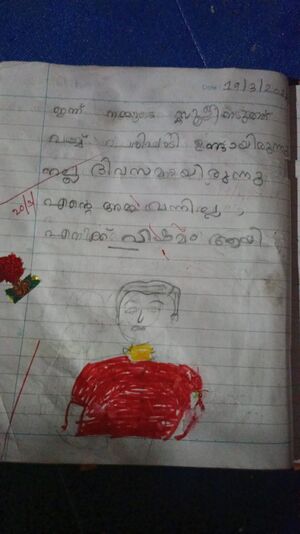 Date : 19/3/202
ഇന്ന് നമ്മുടെ
പരിപാടി ഉണ്ടായിരുന്നു
നല്ല ദിവസമായിരുന്നു
20/3
എന്റെ അമ്മ വന്നില്ല,
എനിക്ക് വിഷമം ആയി